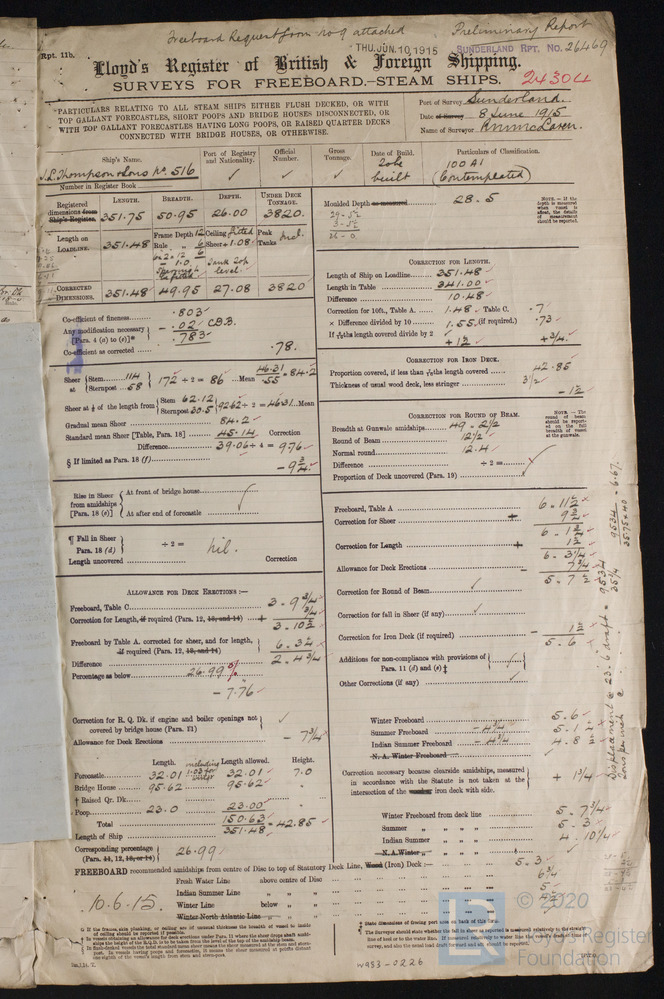 Freeboard Request form no 9 attached
Preliminary Report
Rpt. 11b.
THU. JUN. 10, 1915
SUNDERLAND RPT. No. 26469
Lloyd's Register of British & Foreign Shipping.
SURVEYS FOR FREEBOARD.—STEAM SHIPS.
24304
PARTICULARS RELATING TO ALL STEAM SHIPS EITHER FLUSH DECKED, OR WITH
TOP GALLANT FORECASTLES, SHORT POOPS AND BRIDGE HOUSES DISCONNECTED, OR
WITH TOP GALLANT FORECASTLES HAVING LONG POOPS, OR RAISED QUARTER DECKS
CONNECTED WITH BRIDGE HOUSES, OR OTHERWISE.
Port of Survey Sunderland.
Date of Survey 8 June 1915
Name of Surveyor
Ship's Name.
Port of Registry and Nationality.
Official Number.
Gross Tonnage.
Date of Build.
Particulars of Classification.
J.L. Thompson & Sons No. 516
To be built
100 A1
(Contemplated)
Number in Register Book
LENGTH. BREADTH. DEPTH. UNDER DECK TONNAGE.
Registered dimensions from Ship's Register. 351.75 50.95 26.00 3820.
Moulded Depth as measured 28.5
NOTE.—If the depth is measured when vessel is afloat, the details of measurement should be reported.
Length on LOADLINE. 351.48
Frame Depth 12
Rule 6
Ceiling fitted
Sheer + 1.08
Peak Tanks Incl.
Tank top level.
CORRECTED DIMENSIONS. 351.48 49.95 27.08 3820
Co-efficient of fineness .803
Any modification necessary [Para. 4 (a) to (e)]* - .02 C.D.B.
.783
Co-efficient as corrected .78.
CORRECTION FOR LENGTH.
Length of Ship on Loadline 351.48
Length in Table 341.00
Difference 10.48
Correction for 10ft., Table A. 1.48. Table C. .7
× Difference divided by 10 1.55. (if required.) .73
If 6/10ths length covered divide by 2 + 1½ + ¾.
CORRECTION FOR IRON DECK.
Proportion covered, if less than 7/10ths length covered 42.85
Thickness of usual wood deck, less stringer 3½
- 1½
Sheer at Stem 114 Sternpost 58 172 ÷ 2 = 86 ...Mean 46.31 .55 = 84.2
Sheer at ⅛ of the length from Stem 62.12 Sternpost 30.5 92.62 ÷ 2 = 46.31 ...Mean
Gradual mean Sheer 84.2
Standard mean Sheer [Table, Para. 18] 45.14 Correction
Difference 39.06 ÷ 4 = 9.76
§ If limited as Para. 18 (f) - 9¾
CORRECTION FOR ROUND OF BEAM.
Breadth at Gunwale amidships 49 - 2½
Round of Beam 12½
Normal round 12.4
Difference ÷ 2 =
Proportion of Deck uncovered (Para. 19)
NOTE.—The round of beam should be reported on the full breadth of vessel at the gunwale.
Rise in Sheer from amidships [Para. 18 (e)]
At front of bridge house
At after end of forecastle
¶ Fall in Sheer Para. 18 (d) ÷ 2 = nil.
Length uncovered Correction
Freeboard, Table A 6. 11½
Correction for Sheer 9¾
6 - 1¾
Correction for Length + 1½
6 - 3¼
Allowance for Deck Erections - 7¾
5 - 7½
Correction for Round of Beam
Correction for fall in Sheer (if any)
Correction for Iron Deck (if required) - 1½
5 - 6
Additions for non-compliance with provisions of Para. 11 (d) and (e) ‡
Other Corrections (if any)
ALLOWANCE FOR DECK ERECTIONS :—
Freeboard, Table C 3 - 9¾
Correction for Length, if required (Para. 12, 13, and 14) + ¾
3 - 10½
Freeboard by Table A. corrected for sheer, and for length, if required (Para. 12, 13, and 14) 6. 3¼
Difference 2 - 4¾
Percentage as below 26.99%
- 7.76
Correction for R. Q. Dk. if engine and boiler openings not covered by bridge house (Para. 12)
Allowance for Deck Erections - 7¾
Winter Freeboard 5.6
Summer Freeboard - 4¾ 5. 1¼
Indian Summer Freeboard - 4¾ 4. 8½
N. A. Winter Freeboard
Correction necessary because clearside amidships, measured in accordance with the Statute is not taken at the intersection of the wooden iron deck with side. + 1¾
Length. Length allowed. Height.
Forecastle 32.01 including 1.03 for 32.01 7.0
Bridge House 95.62 95.62 "
† Raised Qr. Dk.
Poop 23.0 23.00 "
Total 150.63
Length of Ship 351.48 = 42.85
Corresponding percentage (Para. 11, 12, 13, or 14) 26.99
Winter Freeboard from deck line 5 - 7¾
Summer " " " " 5 - 3
Indian Summer " " " " 4 - 10¼
N. A. Winter " " " "
FREEBOARD recommended amidships from centre of Disc to top of Statutory Deck Line, Wood (Iron) Deck :— 5. 3
Fresh Water Line above centre of Disc 6¾
Indian Summer Line " "
Winter Line below "
Winter North Atlantic Line "
10.6.15.
Displacement @ 23.6 draft = 9534
Tons per inch
© 2020
Lloyd's Register Foundation
W983-0226